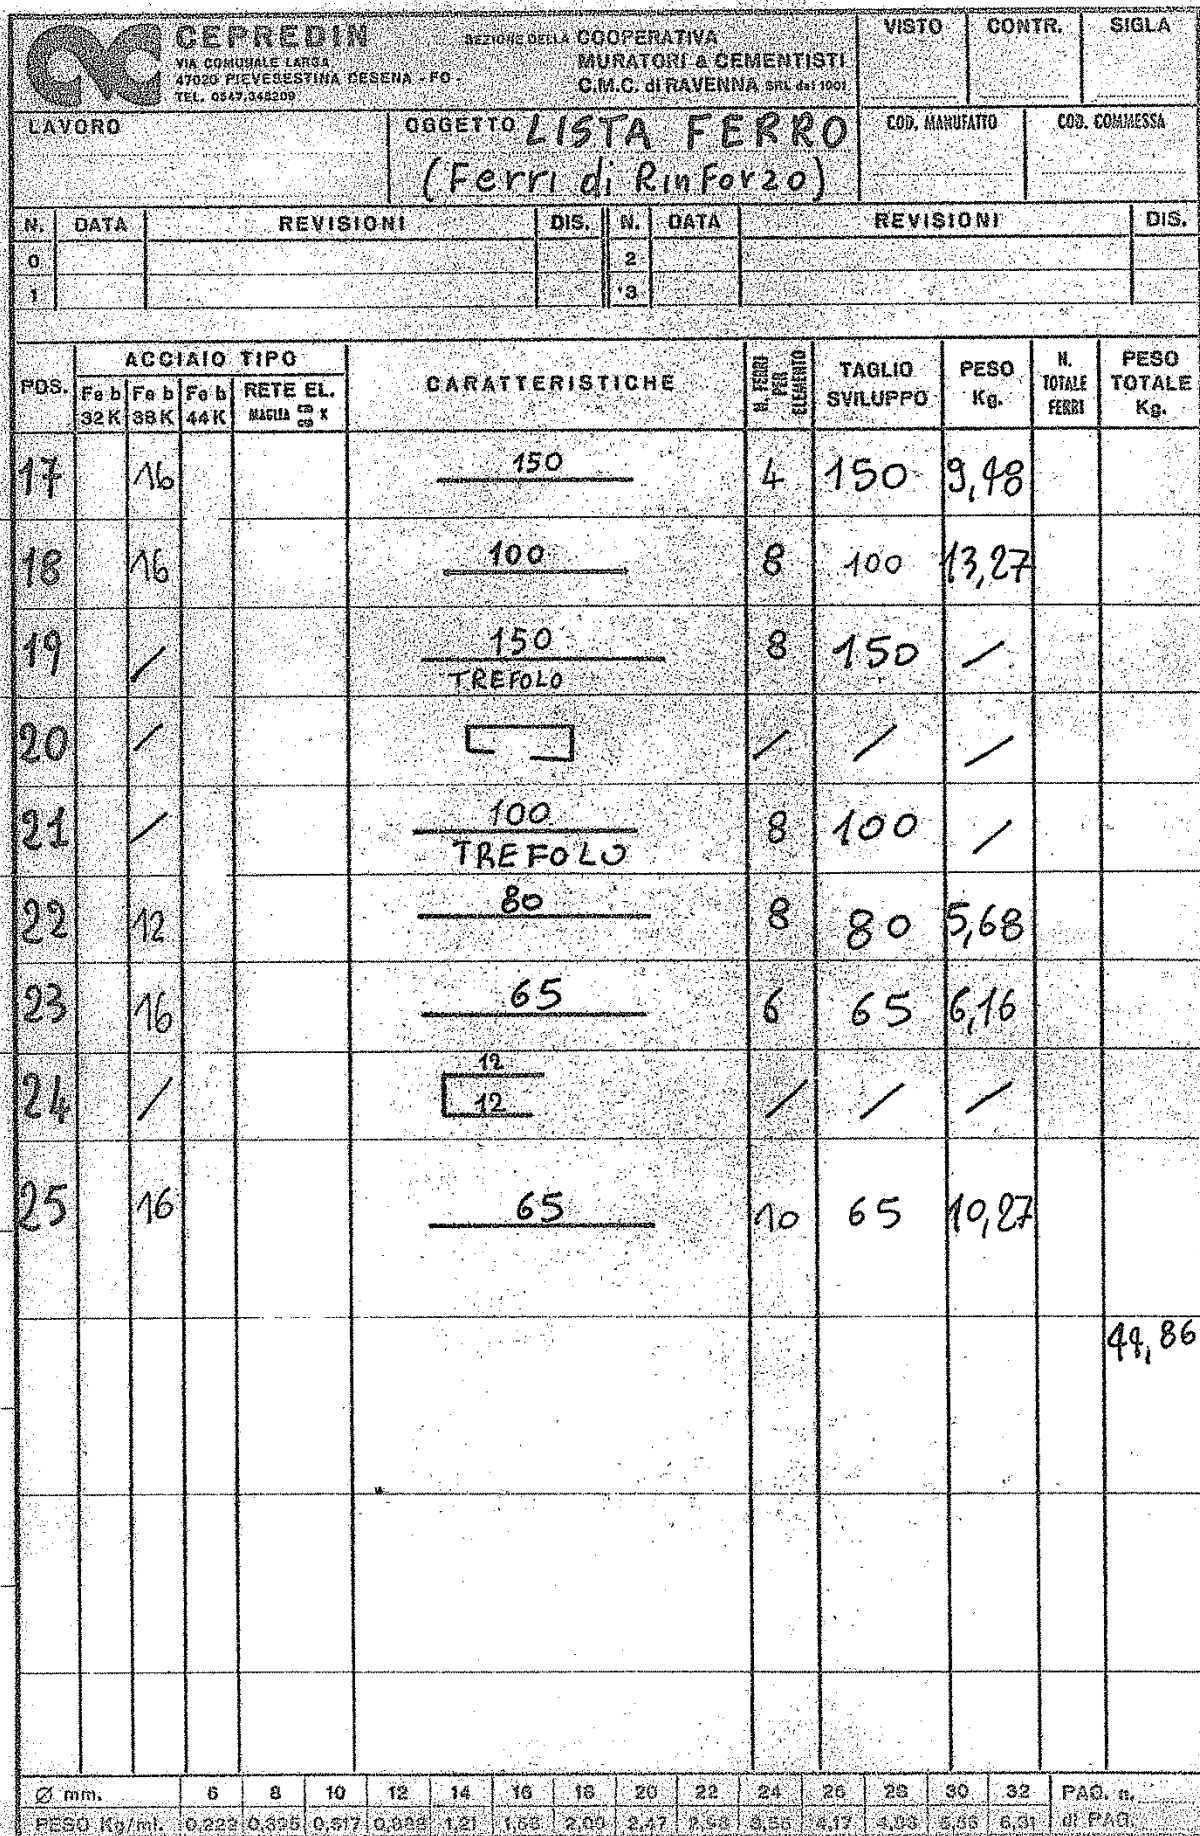 CEPREDIN
VIA COMUNALE LARGA
47020 PIEVESESTINA CESENA - FO -
TEL. 0547.348209
SEZIONE DELLA COOPERATIVA
MURATORI & CEMENTISTI
C.M.C. di RAVENNA SRL dal 1901
VISTO CONTR. SIGLA
LAVORO
OGGETTO LISTA FERRO
(Ferri di RinForzo)
COD. MANUFATTO COD. COMMESSA
N. DATA REVISIONI DIS. N. DATA REVISIONI DIS.
0 2
1 3
POS. ACCIAIO TIPO CARATTERISTICHE N. FERRI PER ELEMENTO TAGLIO SVILUPPO PESO Kg. N. TOTALE FERRI PESO TOTALE Kg.
Fe b 32K Fe b 38K Fe b 44K RETE EL. MAGLIA cm cm K
17 16 150 4 150 9,48
18 16 100 8 100 13,27
19 / 150 TREFOLO 8 150 /
20 / / / /
21 / 100 TREFOLO 8 100 /
22 12 80 8 80 5,68
23 16 65 6 65 6,16
24 / 12 12 / / /
25 16 65 10 65 10,27
44,86
Ø mm. 6 8 10 12 14 16 18 20 22 24 26 28 30 32 PAG. n.
PESO Kg/ml. 0,222 0,395 0,617 0,888 1,21 1,58 2,00 2,47 2,98 3,55 4,17 4,83 5,55 6,31 di PAG.